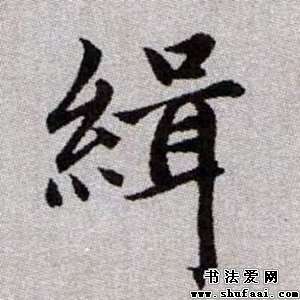 緝
书法爱网
www.shufaai.com